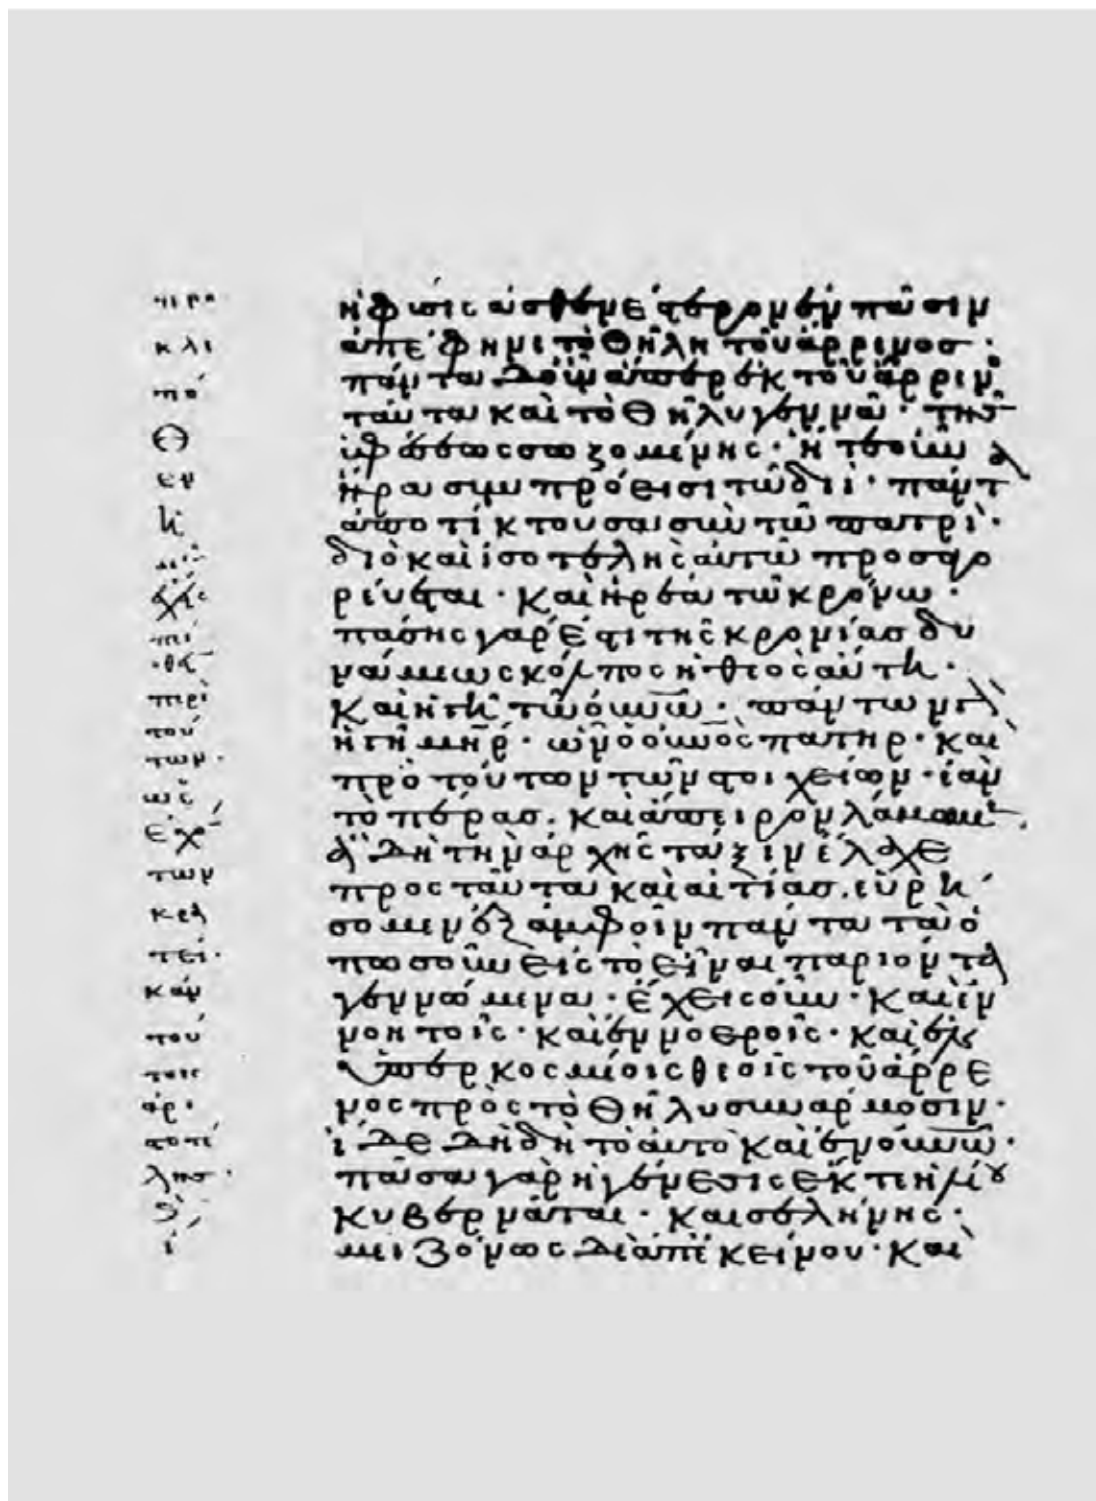 κλι
πό
Θ
εν
περὶ
τού
των·
ὡς
ἐχ
των
κεα
τεί·
κἀν
τού
τοις
ἀρι
στοτέ
λησ·
ἡ φύσις
ἀπέφηνε τὸ θῆλυ τοῦ ἄρρενος·
πάντα δ' ὅμως ὥσπερ ἐκ τοῦ ἄρρενο
ταῦτα καὶ τὸ θῆλυ γεννᾶ· τῆς
ὑφέσεως σωζομένης· ἥ τε οὖν
ἥρα συμπρόεισι τῶ διί· πάντα
ἀποτίκτουσα σὺν τῶ πατρί·
διὸ καὶ ἰσοτελὴς αὐτῶ προσαγο
ρεύεται· καὶ ἡ ρέα τῶ κρόνω·
πάσης γάρ ἐστι τῆς κρονίας δυ
νάμεως κόλπος ἡ θεὸς αὕτη·
καὶ ἡ γῆ τῶ οὐνῶ· πάντων γὰρ
ἡ γῆ μῆρ· ὧν ὁ οὐνὸς πατήρ· καὶ
πρὸ τούτων τῶν στοιχείων· ἐὰν
τὸ πέρας· καὶ ἄπειρον λάβωμεν·
ἃ δὴ τὴν ἀρχῆς τάξιν ἔλαχε
πρὸς ταῦτα καὶ αἰτίας. εὑρή
σομεν ἐξ ἀμφοῖν πάντα τὰ ὁ
πωσοῦν εἰς τὸ εἶναι παριόντα
γεννώμενα· ἔχεις οὖν· καὶ ἐν
νοητοῖς· καὶ ἐν νοεροῖς· καὶ ἐν
ὑπερκοσμίοις θεοῖς τοῦ ἄρρε
νος πρὸς τὸ θῆλυ συναρμοσιν·
ἰδε δὴ τὸ αὐτὸ καὶ ἐν οὐνῶ·
πᾶσα γὰρ ἡ γένεσις ἐκ τε ἡλίου
κυβερνᾶται· καὶ σελήνης·
μειζόνως δὲ ἀπ' ἐκείνου· καὶ